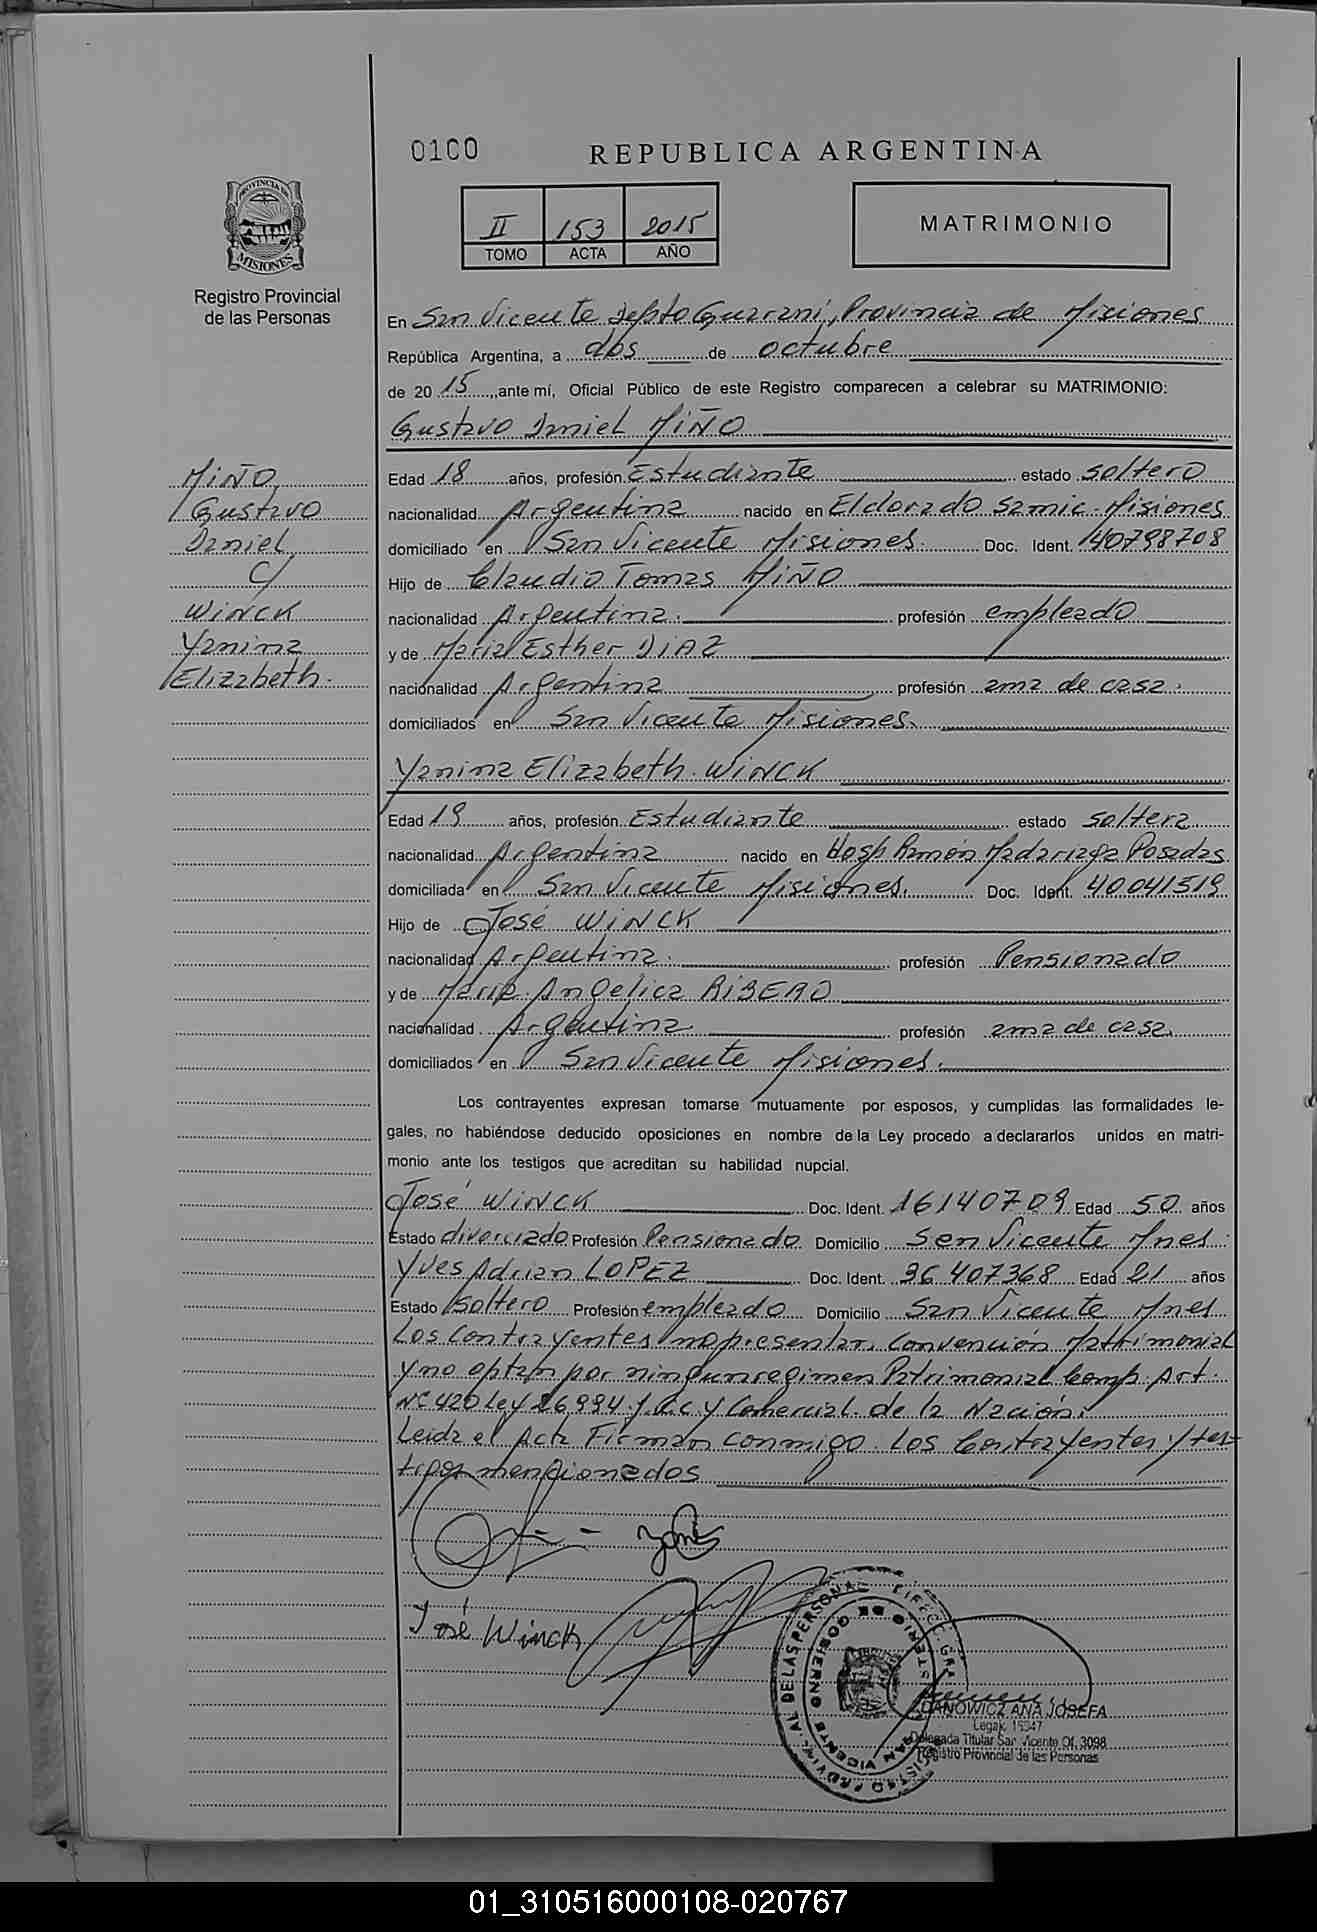 0100
REPUBLICA ARGENTINA
II 153 2015
TOMO ACTA AÑO
MATRIMONIO
PROVINCIA DE
MISIONES
Registro Provincial
de las Personas
En San Vicente Depto Guarani, Provincia de Misiones
República Argentina, a dos de octubre
de 2015, ante mí, Oficial Público de este Registro comparecen a celebrar su MATRIMONIO:
Gustavo Daniel MIÑO
MIÑO
Gustavo
Daniel
C/
WINCK
Yanina
Elizabeth.
Edad 18 años, profesión Estudiante estado soltero
nacionalidad Argentina nacido en Eldorado Samic-Misiones
domiciliado en San Vicente Misiones. Doc. Ident. 40798708
Hijo de Claudio Tomas MIÑO
nacionalidad Argentina. profesión empleado
y de Maria Esther DIAZ
nacionalidad Argentina profesión ama de casa.
domiciliados en San Vicente Misiones.
Yanina Elizabeth WINCK
Edad 19 años, profesión Estudiante estado soltera
nacionalidad Argentina nacido en Hosp Ramón Madariaga Posadas
domiciliada en San Vicente Misiones. Doc. Ident. 40041519
Hijo de José WINCK
nacionalidad Argentina. profesión Pensionado
y de Maria Angelica RIBERO
nacionalidad Argentina profesión ama de casa.
domiciliados en San Vicente Misiones.
Los contrayentes expresan tomarse mutuamente por esposos, y cumplidas las formalidades le-
gales, no habiéndose deducido oposiciones en nombre de la Ley procedo a declararlos unidos en matri-
monio ante los testigos que acreditan su habilidad nupcial.
José WINCK Doc. Ident. 16140709 Edad 50 años
Estado divorciado Profesión Pensionado Domicilio San Vicente Mnes.
Yves Adrian LOPEZ Doc. Ident. 36407368 Edad 21 años
Estado soltero Profesión empleado Domicilio San Vicente Mnes
Los Contrayentes no presentan Convención Matrimonial
y no optan por ningun regimen Patrimonial Comp. Art.
Nº 420 Ley 26994 C y Comercial de la Nación.
Leida el Acta Firman conmigo Los Contrayentes y tes-
tigos mencionados
José Winck
DANOWICZ ANA JOSEFA
Delegada Titular San Vicente Of. 3098
Registro Provincial de las Personas
01_310516000108-020767